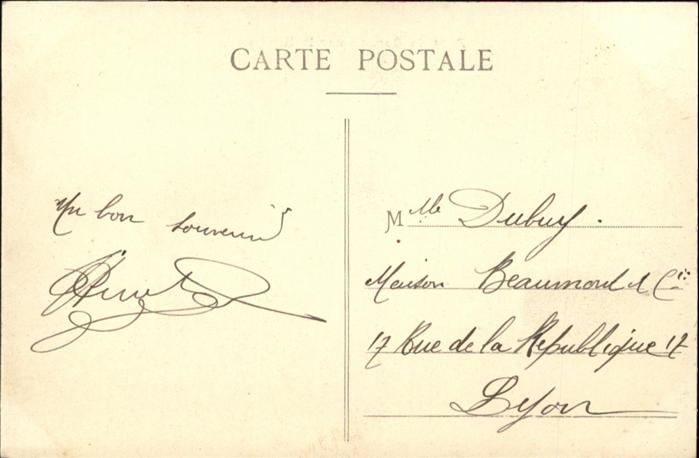 CARTE POSTALE
Un bon souvenir
M lle Dubuy.
Maison Beaumont & Cie
17 Rue de la République 17
Lyon